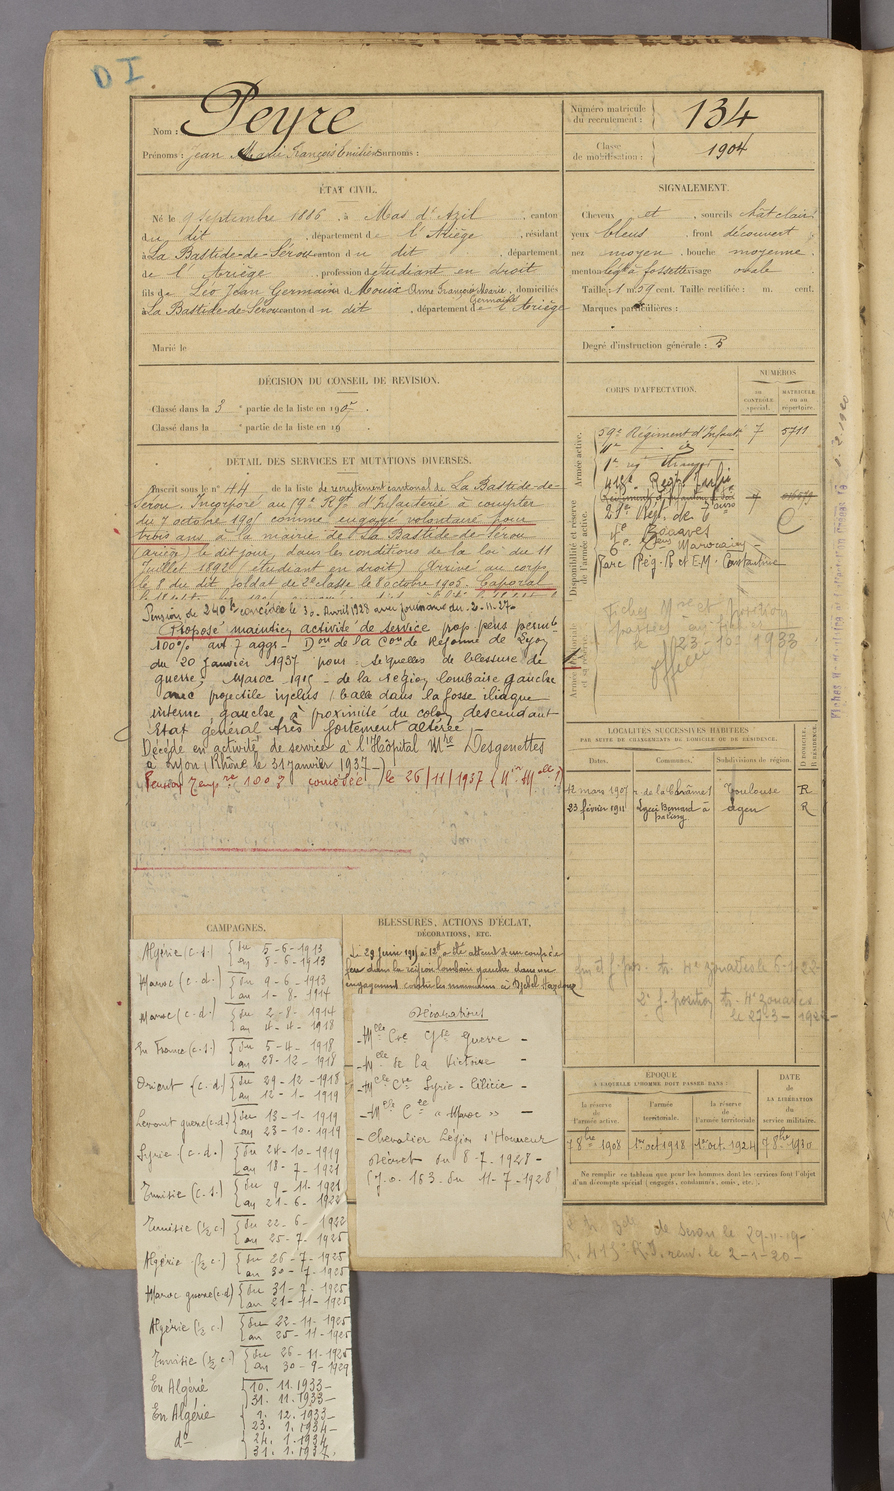 DI
Nom : Peyre
Prénoms : Jean Marie François Emilien Surnoms :
Numéro matricule
du recrutement : 134
Classe
de mobilisation : 1904
ÉTAT CIVIL.
Né le 9 septembre 1886, à Mas d'Azil, canton
du dit, département de l'Ariège, résidant
à La Bastide-de-Sérou canton du dit, département
de l'Ariège, profession d'étudiant en droit
fils de Léo Jean Germain et de Mouix Anne Françoise Marie Germaine, domiciliés
à La Bastide-de-Sérou canton du dit, département de l'Ariège
Marié le
SIGNALEMENT.
Cheveux et, sourcils chât clair
yeux bleus, front découvert
nez moyen, bouche moyenne
menton à fossette visage ovale
Taille : 1 m. 59 cent. Taille rectifiée : m. cent.
Marques particulières :
Degré d'instruction générale : 5
DÉCISION DU CONSEIL DE REVISION.
Classé dans la 3e partie de la liste en 1907.
Classé dans la e partie de la liste en 19 .
CORPS D'AFFECTATION.
NUMÉROS
AU CONTRÔLE spécial.
MATRICULE OU AU répertoire.
Armée active.
59e Régiment d'Infanterie 7 5711
1er rég étranger
415e Regt Infie
Disponibilité et réserve
de l'armée active.
4e Zouaves
Marocains
Parc Rég. et E.M. Constantine
Fiches et position
le 23-10-1933
DÉTAIL DES SERVICES ET MUTATIONS DIVERSES.
Inscrit sous le n° 44 de la liste de recrutement cantonal de La Bastide-de-
Sérou. Incorporé au 59e Rgt d'Infanterie à compter
du 7 octobre 1905 comme engagé volontaire pour
trois ans à la mairie de La Bastide-de-Sérou
(Ariège) le dit jour, dans les conditions de la loi du 11
Juillet 1892 (étudiant en droit) Arrivé au corps
le 8 du dit, soldat de 2e classe le 8 octobre 1905. Caporal
Pension de 240 f concédée le 30 Avril 1928 avec jouissance du 2-11-27
Proposé maintien activité de service prop. pens permte
100% art 7 aggr - Don de la Con de Réforme de Lyon
du 20 Janvier 1937 pour : séquelles de blessure de
guerre, Maroc 1915 - de la région lombaire gauche
avec projectile inclus (balle dans la fosse iliaque
interne gauche à proximité du colon descendant
Etat général très fortement altéré)
Décédé en activité de service à l'Hôpital Mre Desgenettes
à Lyon (Rhône) le 31 janvier 1937
Pension Tempre 100% concédée le 26/11/1937
LOCALITÉS SUCCESSIVES HABITÉES
PAR SUITE DE CHANGEMENTS DE DOMICILE OU DE RÉSIDENCE.
Dates. Communes. Subdivisions de région. D DOMICILE. R RÉSIDENCE.
12 mars 1907 Toulouse R
23 février 1911 Lycée Bernard Palissy Agen R
CAMPAGNES.
Algérie (c.s.) { du 5-6-1913
au 8-6-1913
Maroc (c.d.) { du 9-6-1913
au 1-8-1914
Maroc (c.d.) { du 2-8-1914
au 4-4-1918
En France (c.s.) { du 5-4-1918
au 28-12-1918
Orient (c.d.) { du 29-12-1918
au 12-1-1919
Levant guerre (c.d.) { du 13-1-1919
au 23-10-1919
Syrie (c.d.) { du 24-10-1919
au 18-7-1921
Tunisie (c.s.) { du 9-11-1921
au 21-6-1922
Tunisie (½ c.) { du 22-6-1922
au 25-7-1925
Algérie (½ c.) { du 26-7-1925
au 30-7-1925
Maroc guerre (c.d) { du 31-7-1925
au 21-11-1925
Algérie (½ c.) { du 22-11-1925
au 25-11-1925
Tunisie (½ c.) { du 26-11-1925
au 30-9-1929
En Algérie { 10.11.1933
31.11.1933
En Algérie { 1.12.1933
23.1.1934
do { 24.1.1934
31.1.1937
BLESSURES, ACTIONS D'ÉCLAT,
DÉCORATIONS, ETC.
Le 29 Juin 1915 à 12h a été atteint d'un coup de
feu dans la région lombaire gauche dans un
engagement contre les marocains à Djebel
Décorations
- Mlle Cre Cse Guerre -
- Mlle de la Victoire -
- Mlle Cre Syrie-Cilicie -
- Mlle Cle « Maroc » -
- Chevalier Légion d'Honneur
Décret du 8-7-1928 -
(J.O. 163 du 11-7-1928)
4e zouaves le 6-1-22
2e f. position tr. 4e zouaves
le 27-3-1922
ÉPOQUE
À LAQUELLE L'HOMME DOIT PASSER DANS :
DATE
de
LA LIBÉRATION
du
service militaire.
la réserve
de
l'armée active.
l'armée
territoriale.
la réserve
de
l'armée territoriale
7 8bre 1908 1er oct 1918 1er oct. 1924 7 8bre 1930
Ne remplir ce tableau que pour les hommes dont les services font l'objet
d'un décompte spécial (engagés, condamnés, omis, etc.).
le 29-11-19-
R. 415e R.I. renv. le 2-1-20-